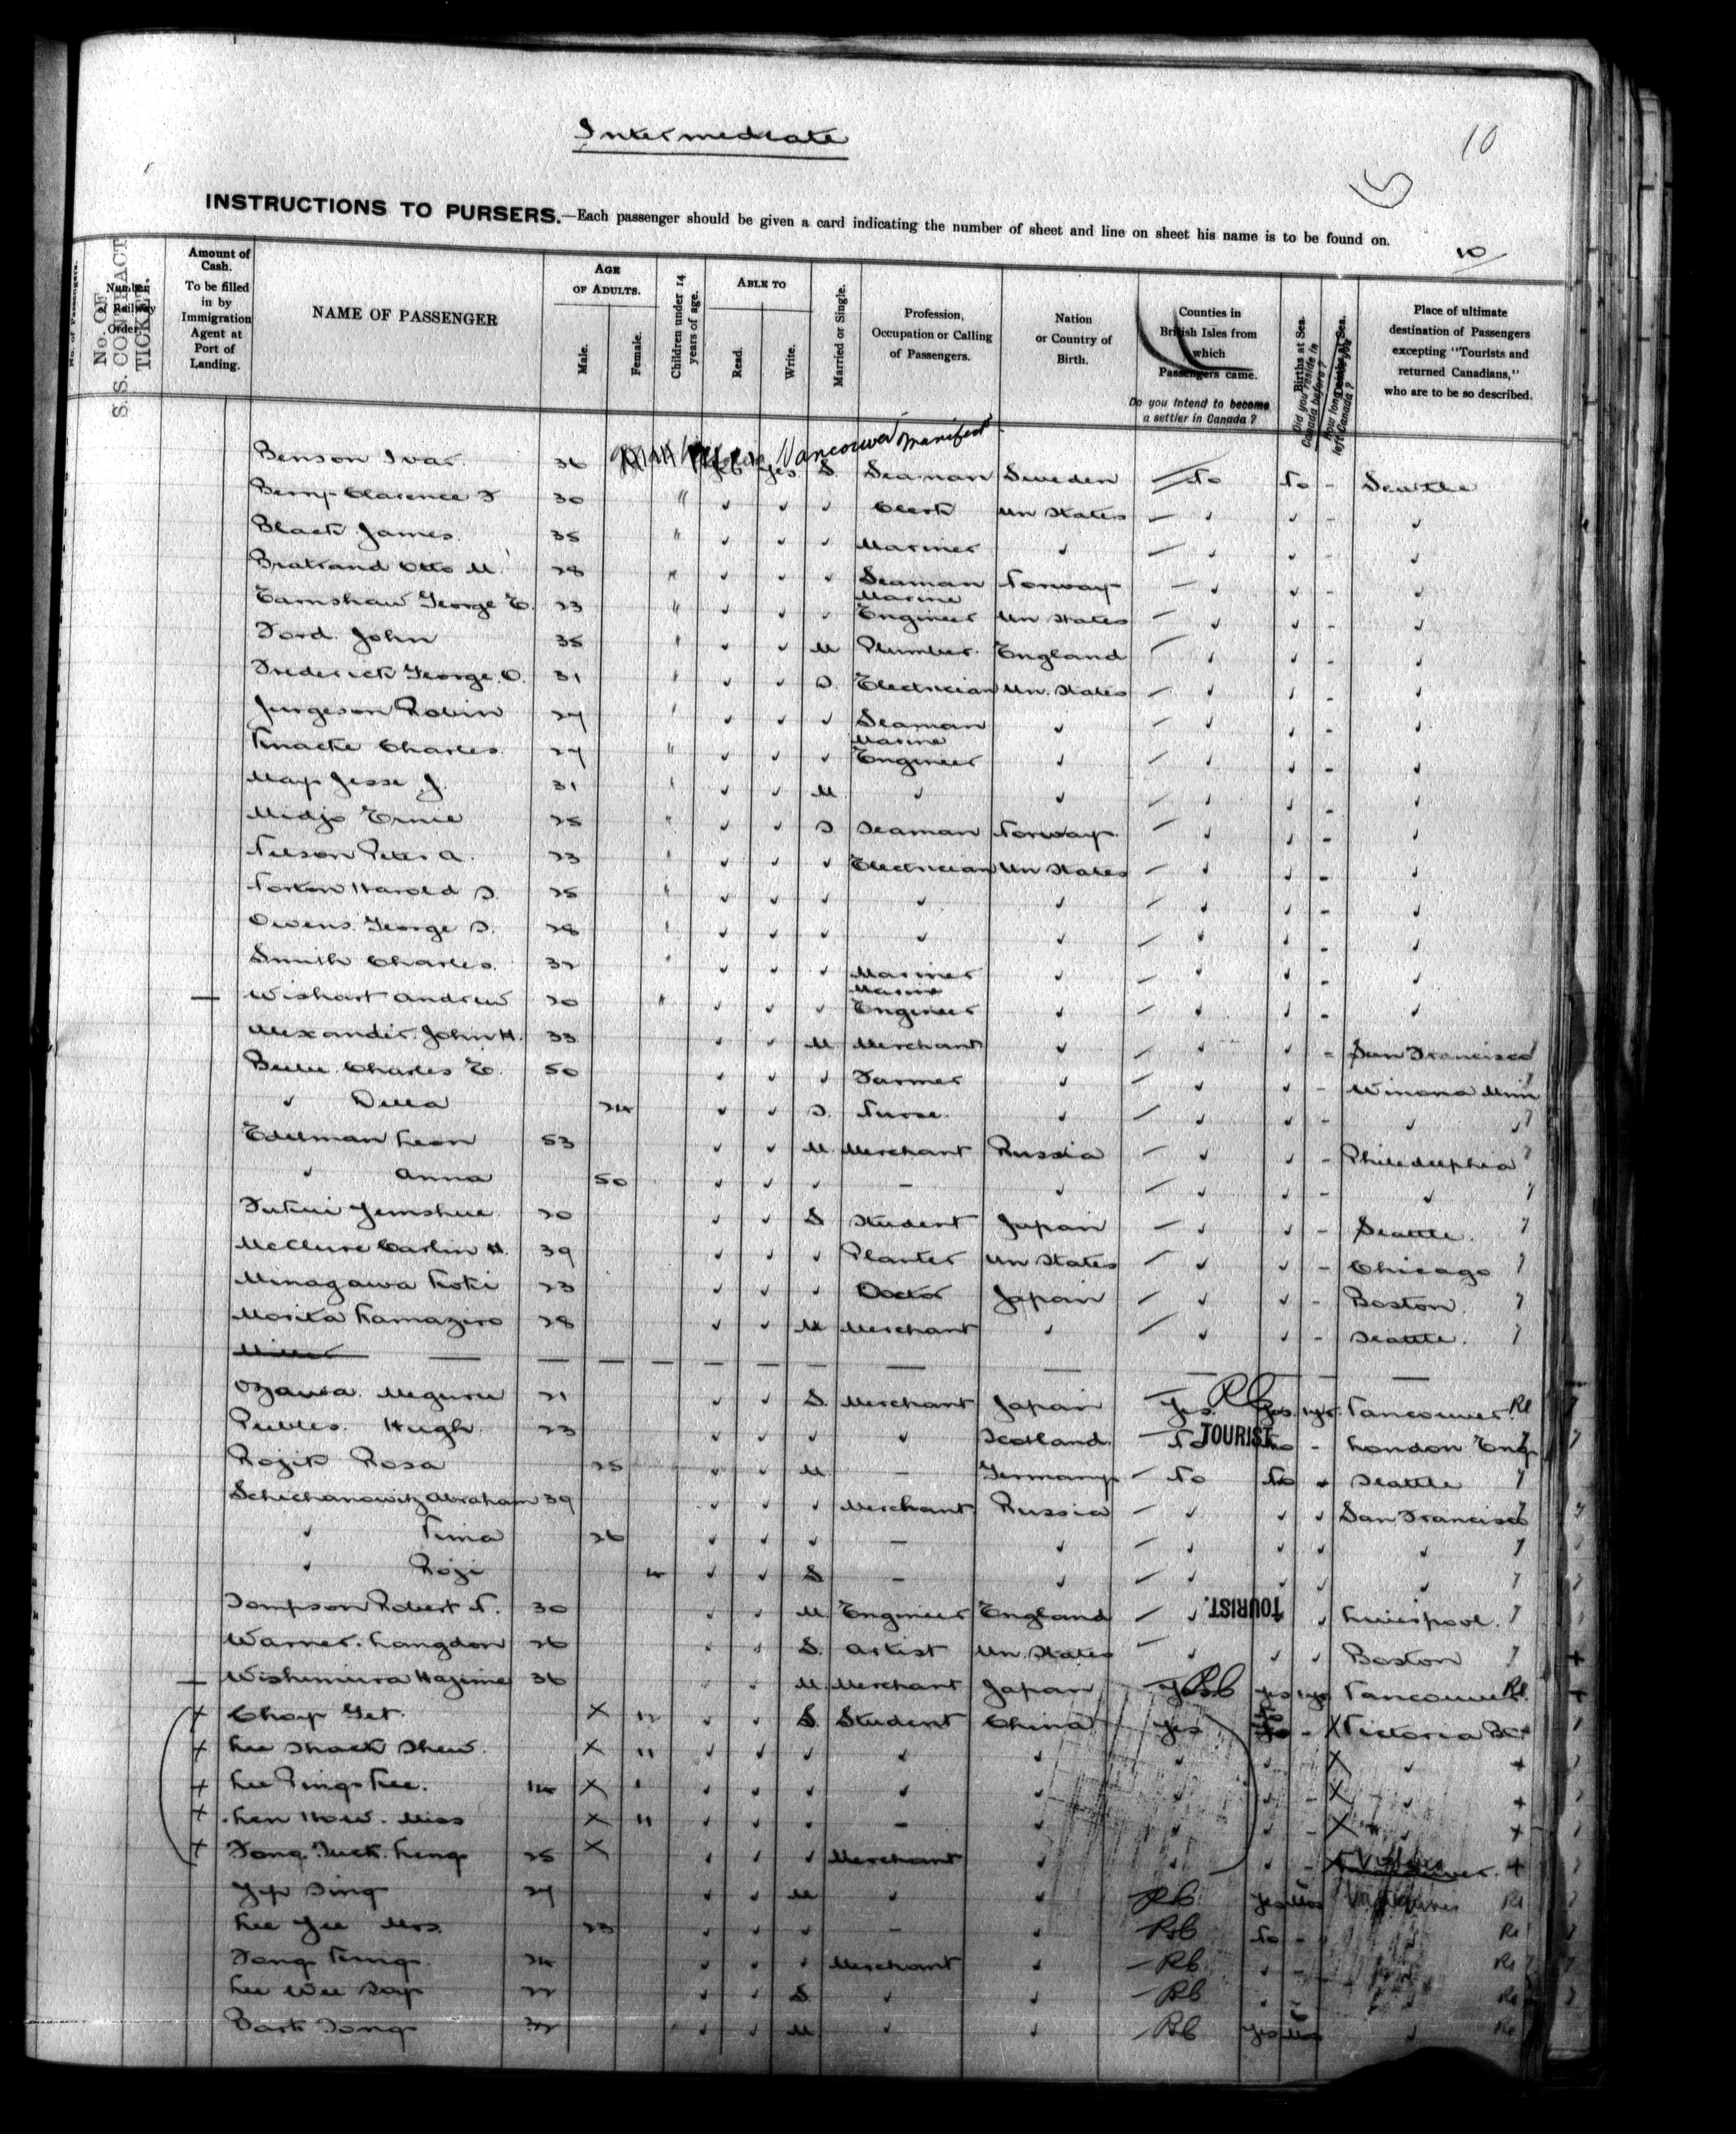 Intermediate
10
INSTRUCTIONS TO PURSERS.—Each passenger should be given a card indicating the number of sheet and line on sheet his name is to be found on.
10
No. of Passengers.
No. OF S. S. CONTRACT TICKET.
Number of Railway Order.
Amount of Cash. To be filled in by Immigration Agent at Port of Landing.
NAME OF PASSENGER
AGE OF ADULTS.
Male.
Female.
Children under 14 years of age.
ABLE TO
Read.
Write.
Married or Single.
Profession, Occupation or Calling of Passengers.
Nation or Country of Birth.
Counties in British Isles from which Passengers came.
Do you intend to become a settler in Canada?
Births at Sea.
Did you reside in Canada before?
Deaths at Sea.
How long since you left Canada?
Place of ultimate destination of Passengers excepting "Tourists and returned Canadians," who are to be so described.
Vancouver manifest
Benson Ivar 36 Yes S. Seaman Sweden No No - Seattle
Berry Clarence F 30 " ✓ ✓ ✓ Clerk Un States ✓ ✓ - ✓
Black James 35 " ✓ ✓ ✓ Mariner ✓ ✓ ✓ - ✓
Bratrand Otto M. 28 " ✓ ✓ ✓ Seaman Norway ✓ ✓ - ✓
Earnshaw George E. 23 " ✓ ✓ ✓ Marine Engineer Un States ✓ ✓ - ✓
Ford John 35 " ✓ ✓ M Plumber England ✓ ✓ - ✓
Frederick George O. 31 " ✓ ✓ S. Electrician Un. States ✓ ✓ - ✓
Jurgeson Robin 27 " ✓ ✓ ✓ Seaman ✓ ✓ ✓ - ✓
Knacke Charles 27 " ✓ ✓ ✓ Marine Engineer ✓ ✓ ✓ - ✓
May Jesse J. 31 " ✓ ✓ M ✓ ✓ ✓ ✓ - ✓
Midjo Ernie 25 " ✓ ✓ S Seaman Norway ✓ ✓ - ✓
Nelson Peter A. 23 " ✓ ✓ ✓ Electrician Un States ✓ ✓ - ✓
Norton Harold S. 25 " ✓ ✓ ✓ ✓ ✓ ✓ ✓ - ✓
Owens George S. 28 " ✓ ✓ ✓ ✓ ✓ ✓ ✓ - ✓
Smith Charles 32 " ✓ ✓ ✓ Mariner ✓ ✓ ✓ - ✓
Wishart Andrew 20 " ✓ ✓ ✓ Marine Engineer ✓ ✓ ✓ - ✓
Alexander John H. 33 ✓ ✓ M Merchant ✓ ✓ ✓ - San Francisco
Charles E. 50 ✓ ✓ ✓ Farmer ✓ ✓ ✓ - Winona Minn
✓ Della 24 ✓ ✓ S. Nurse ✓ ✓ ✓ - ✓
Edelman Leon 53 ✓ ✓ M Merchant Russia ✓ ✓ - Philadelphia
✓ Anna 50 ✓ ✓ ✓ - ✓ ✓ ✓ - ✓
20 ✓ ✓ S Student Japan ✓ ✓ - Seattle
McClure Carlin H. 39 ✓ ✓ ✓ Planter Un States ✓ ✓ - Chicago
Minagawa Koki 23 ✓ ✓ ✓ Doctor Japan ✓ ✓ - Boston
Morita Kamaziro 28 ✓ ✓ M Merchant ✓ ✓ ✓ - Seattle
Ozawa Meguru 21 ✓ ✓ S. Merchant Japan Yes Yes 1 yr. Vancouver
Peebles Hugh 23 ✓ ✓ ✓ ✓ Scotland No TOURIST No - London Eng
Rozik Rosa 25 ✓ ✓ M - Germany No No ✓ Seattle
Schichanowitz Abraham 39 ✓ ✓ ✓ Merchant Russia ✓ ✓ ✓ San Francisco
✓ Fima 26 ✓ ✓ ✓ - ✓ ✓ ✓ ✓ ✓
✓ Rozi 4 ✓ ✓ S - ✓ ✓ ✓ ✓ ✓
Tompson Robert N. 30 ✓ ✓ M Engineer England ✓ TOURIST. ✓ Liverpool
Warner Langdon 26 ✓ ✓ S. Artist Un. States ✓ ✓ ✓ Boston
Wishimura Hazime 36 ✓ ✓ M Merchant Japan Yes Yes Vancouver
Choy Get X 12 ✓ ✓ S. Student China Yes No - Victoria BC
Lee Shack Shew X 11 ✓ ✓ ✓ ✓ ✓ ✓ ✓ ✓
Lee Ping Kee 14 X ✓ ✓ ✓ ✓ ✓ ✓ ✓ - ✓
Len How Miss X 11 ✓ ✓ ✓ - ✓ ✓ ✓ - ✓
Fong Tuck Leng 25 X ✓ ✓ ✓ Merchant ✓ ✓ ✓ -
Yip Sing 27 ✓ ✓ M ✓ ✓ RC Yes Vancouver
Lee Yee Mrs. 23 ✓ ✓ ✓ - ✓ RC No -
Fong King 24 ✓ ✓ ✓ Merchant ✓ RC ✓ -
Lee Wee Say 22 ✓ ✓ S ✓ ✓ RC ✓ -
Bark Tong 32 ✓ ✓ M ✓ ✓ RC Yes ✓